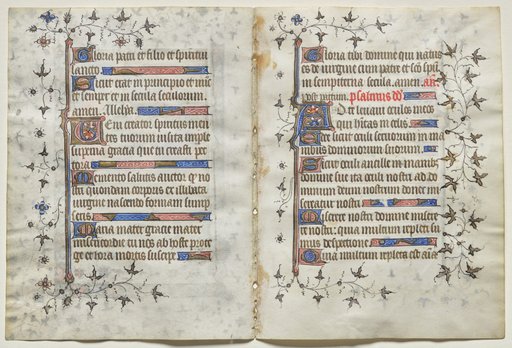 Gloria patri et filio et spiritui
sancto
Sicut erat in principio et nuc
et semper et in secula seculorum
amen. Alleluya.
Veni creator spiritus men
tes tuorum visita imple
superna gratia que tu creasti pec
tora
Memento salutis auctor q no
stri quondam corporis ex illibata
virgine nascendo formam sump
seris
Maria mater gracie mater
misericordie tu nos ab hoste prote
ge et hora mortis suscipe
Gloria tibi domine qui natus
es de virgine cum patre et sco spu
in sempiterna secula. amen. an.
post partum. psalmus dd
Ad te levavi oculos meos
qui habitas in celis
Ecce sicut oculi servorum in ma
nibus dominorum suorum
Sicut oculi ancille in manib
domine sue ita oculi nostri ad do
minum deum nostrum donec mi
sereatur nostri
Miserere nostri domine misere
re nostri quia multum repleti su
mus despectione
Quia multum repleta est aia